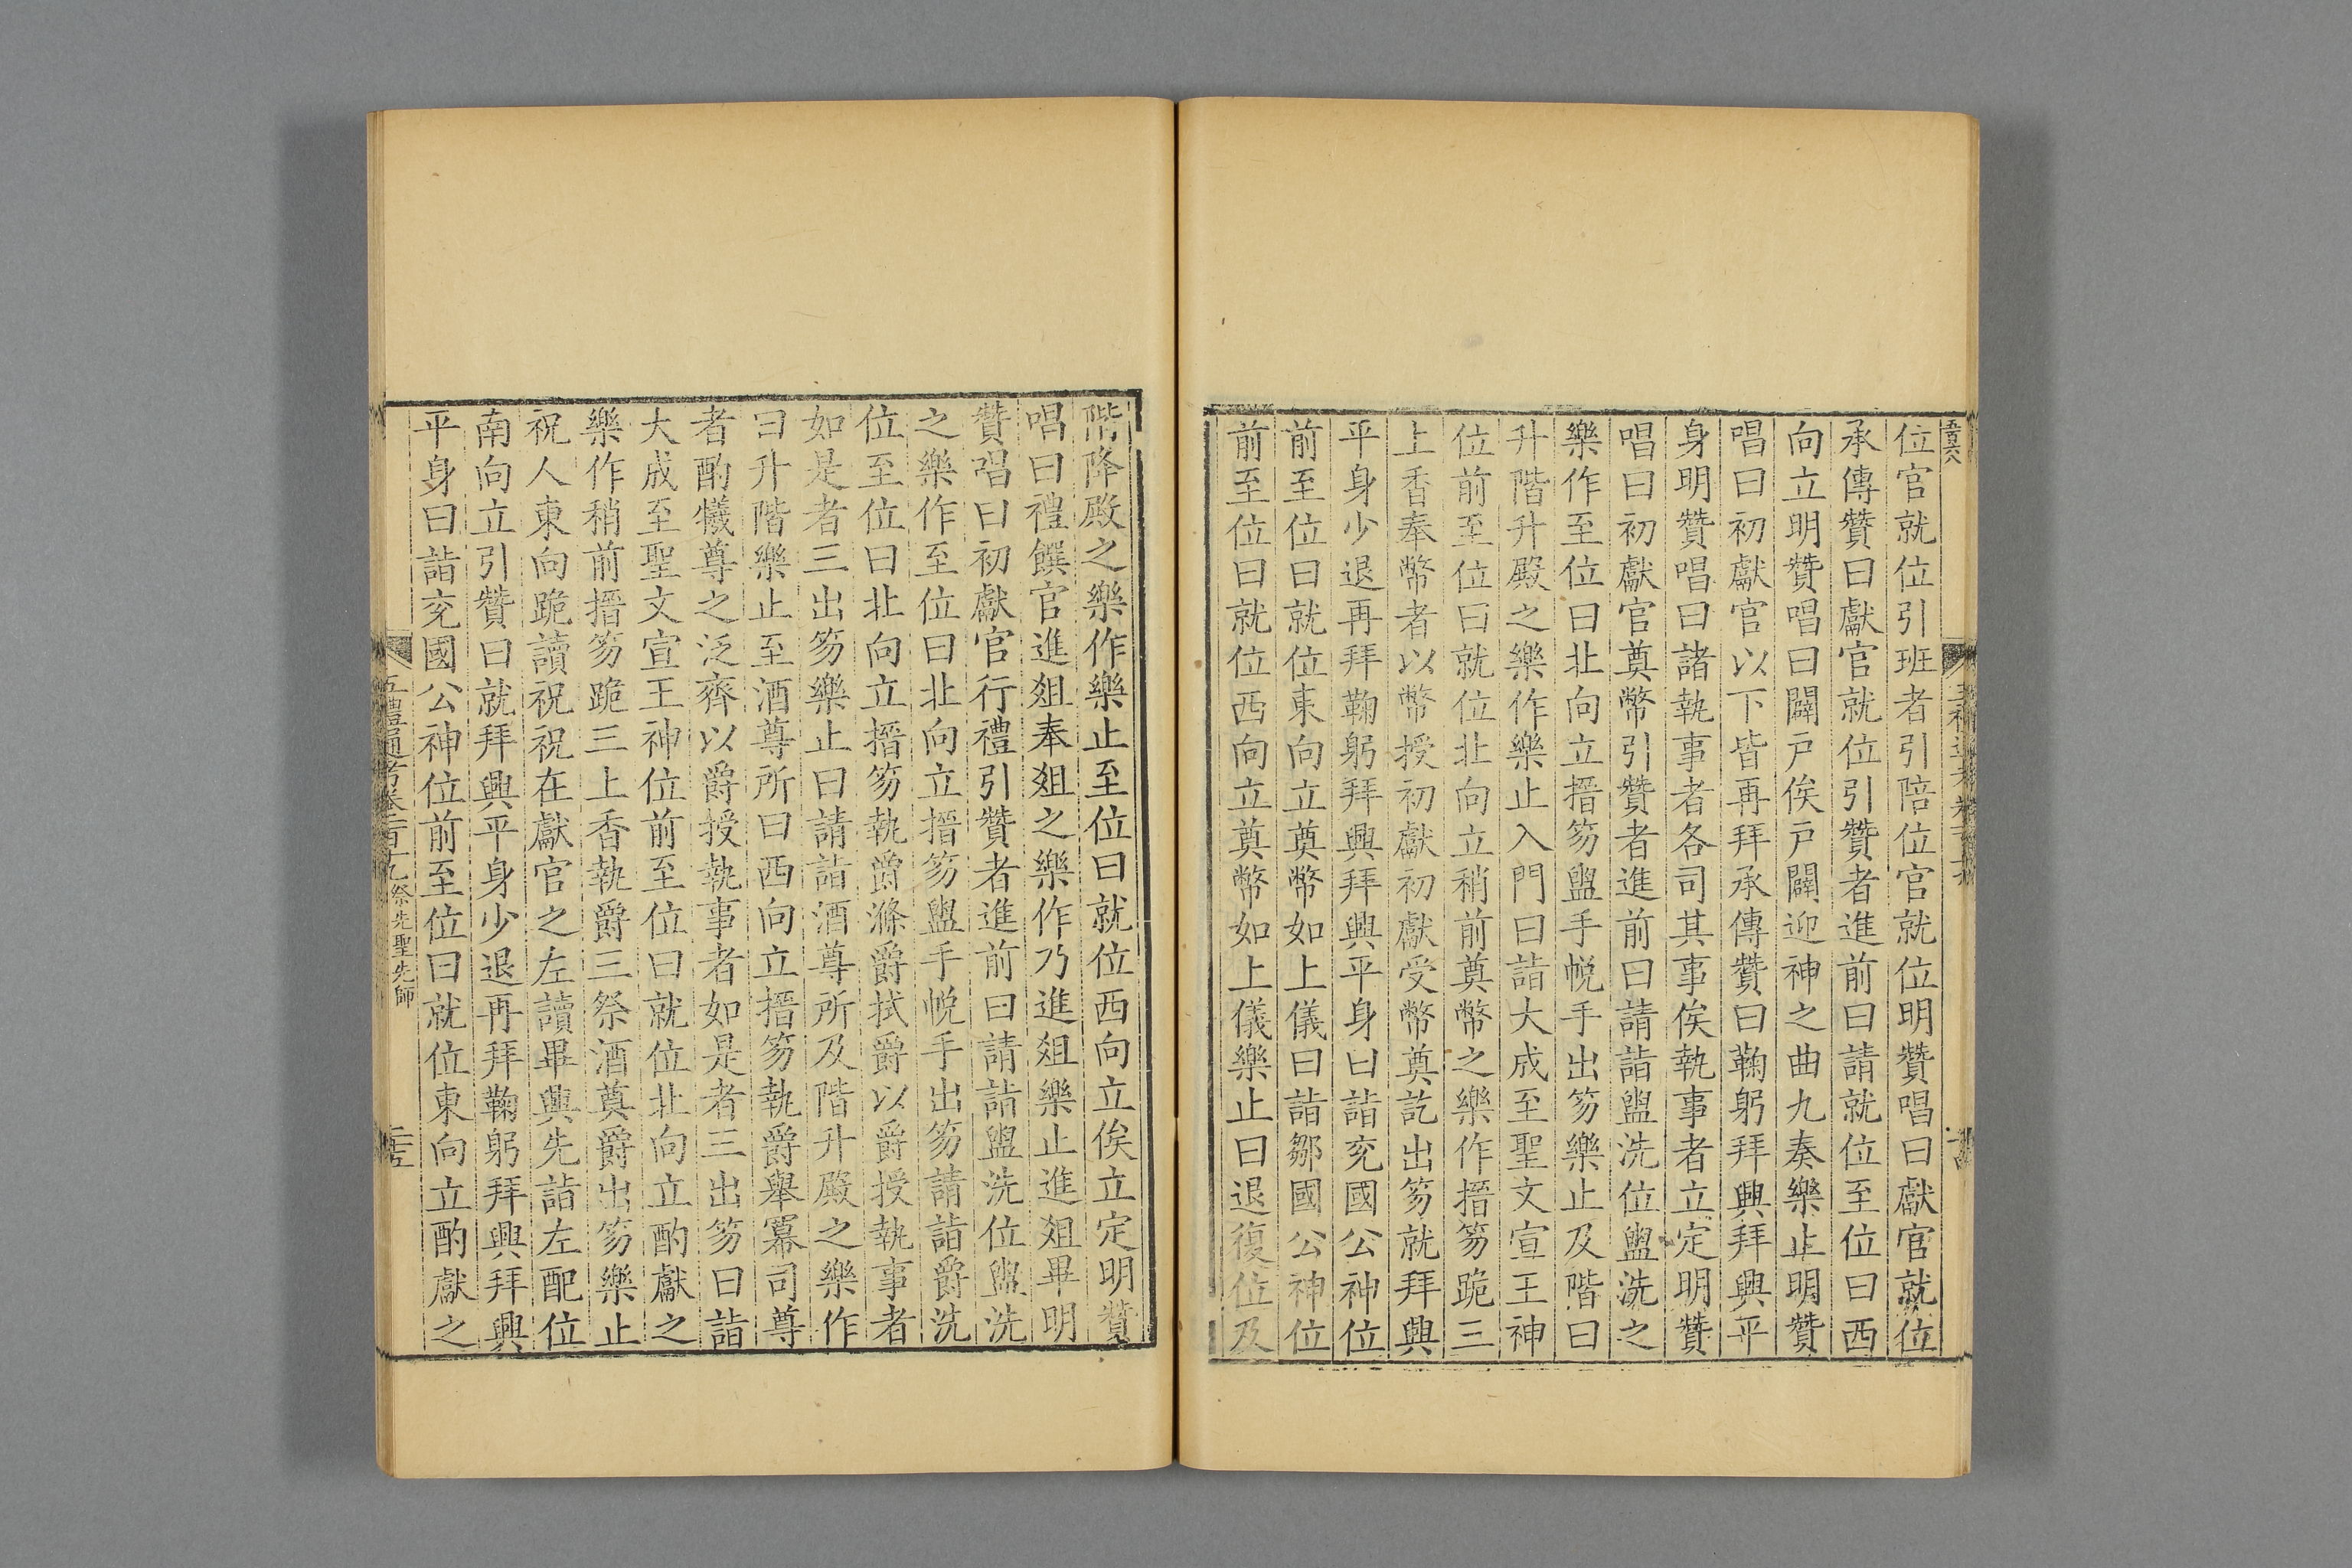 位官就位引班者引陪位官就位明贊唱曰獻官就位
承傳贊曰獻官就位引贊者進前曰請就位至位曰西
向立明贊唱曰闢戸俟戸闢迎神之曲九奏樂止明贊
唱曰初獻官以下皆再拜承傳贊曰鞠躬拜興拜興平
身明贊唱曰諸執事者各司其事俟執事者立定明贊
唱曰初獻官奠幣引贊者進前曰請詣盥洗位盥洗之
樂作至位曰北向立搢笏盥手帨手出笏樂止及階曰
升階升殿之樂作樂止入門曰詣大成至聖文宣王神
位前至位曰就位北向立稍前奠幣之樂作搢笏跪三
上香奉幣者以幣授初獻初獻受幣奠訖出笏就拜興
平身少退再拜鞠躬拜興拜興平身曰詣兖國公神位
前至位曰就位東向立奠幣如上儀曰詣鄒國公神位
前至位曰就位西向立奠幣如上儀樂止曰退復位及
階降殿之樂作樂止至位曰就位西向立俟立定明贊
唱曰禮饌官進俎奉俎之樂作乃進俎樂止進俎畢明
贊唱曰初獻官行禮引贊者進前曰請詣盥洗位盥洗
之樂作至位曰北向立搢笏盥手帨手出笏請詣爵洗
位至位曰北向立搢笏執爵滌爵拭爵以爵授執事者
如是者三出笏樂止曰請詣酒尊所及階升殿之樂作
曰升階樂止至酒尊所曰西向立搢笏執爵舉羃司尊
者酌犧尊之泛齊以爵授執事者如是者三出笏曰詣
大成至聖文宣王神位前至位曰就位北向立酌獻之
樂作稍前搢笏跪三上香執爵三祭酒奠爵出笏樂止
祝人東向跪讀祝祝在獻官之左讀畢興先詣左配位
南向立引贊曰就拜興平身少退再拜鞠躬拜興拜興
平身曰詣兖國公神位前至位曰就位東向立酌獻之
五禮通考卷一百十九 祭先聖先師